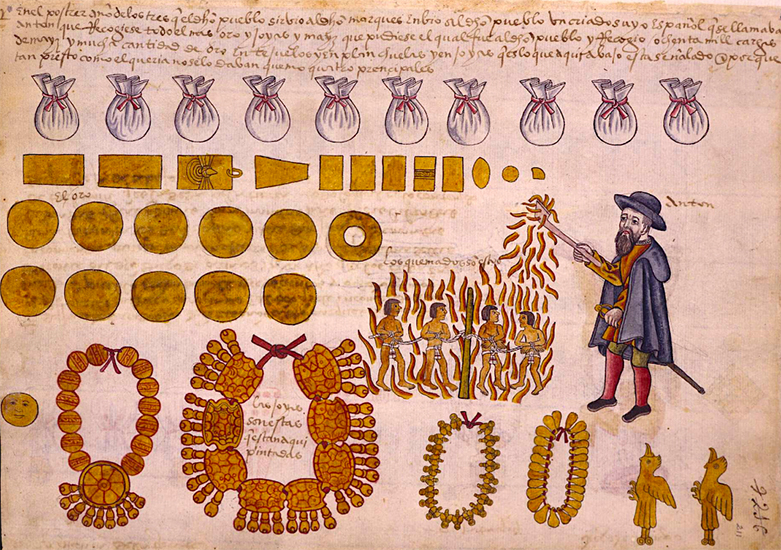 en el postrer año de los tres q̃ el dho pueblo sirvio al dho marques enbio al dho pueblo un criado suyo español q̃ se llamaba
anton que Recogiese todo el mas oro y joyas y mayz que pudiese el qual fue al dho pueblo y Recogio ochenta mill cargas
de mayz y mucha cantidad de oro en tejuelos y en planchuelas y en joyas q̃ es lo que aqui abajo esta señalado y porque
tan presto como el queria no se lo daban quemo quatro prencipales
el oro
anton
los quemados son estos
las joyas
son estas
q̃ estan aqui
pintadas
211